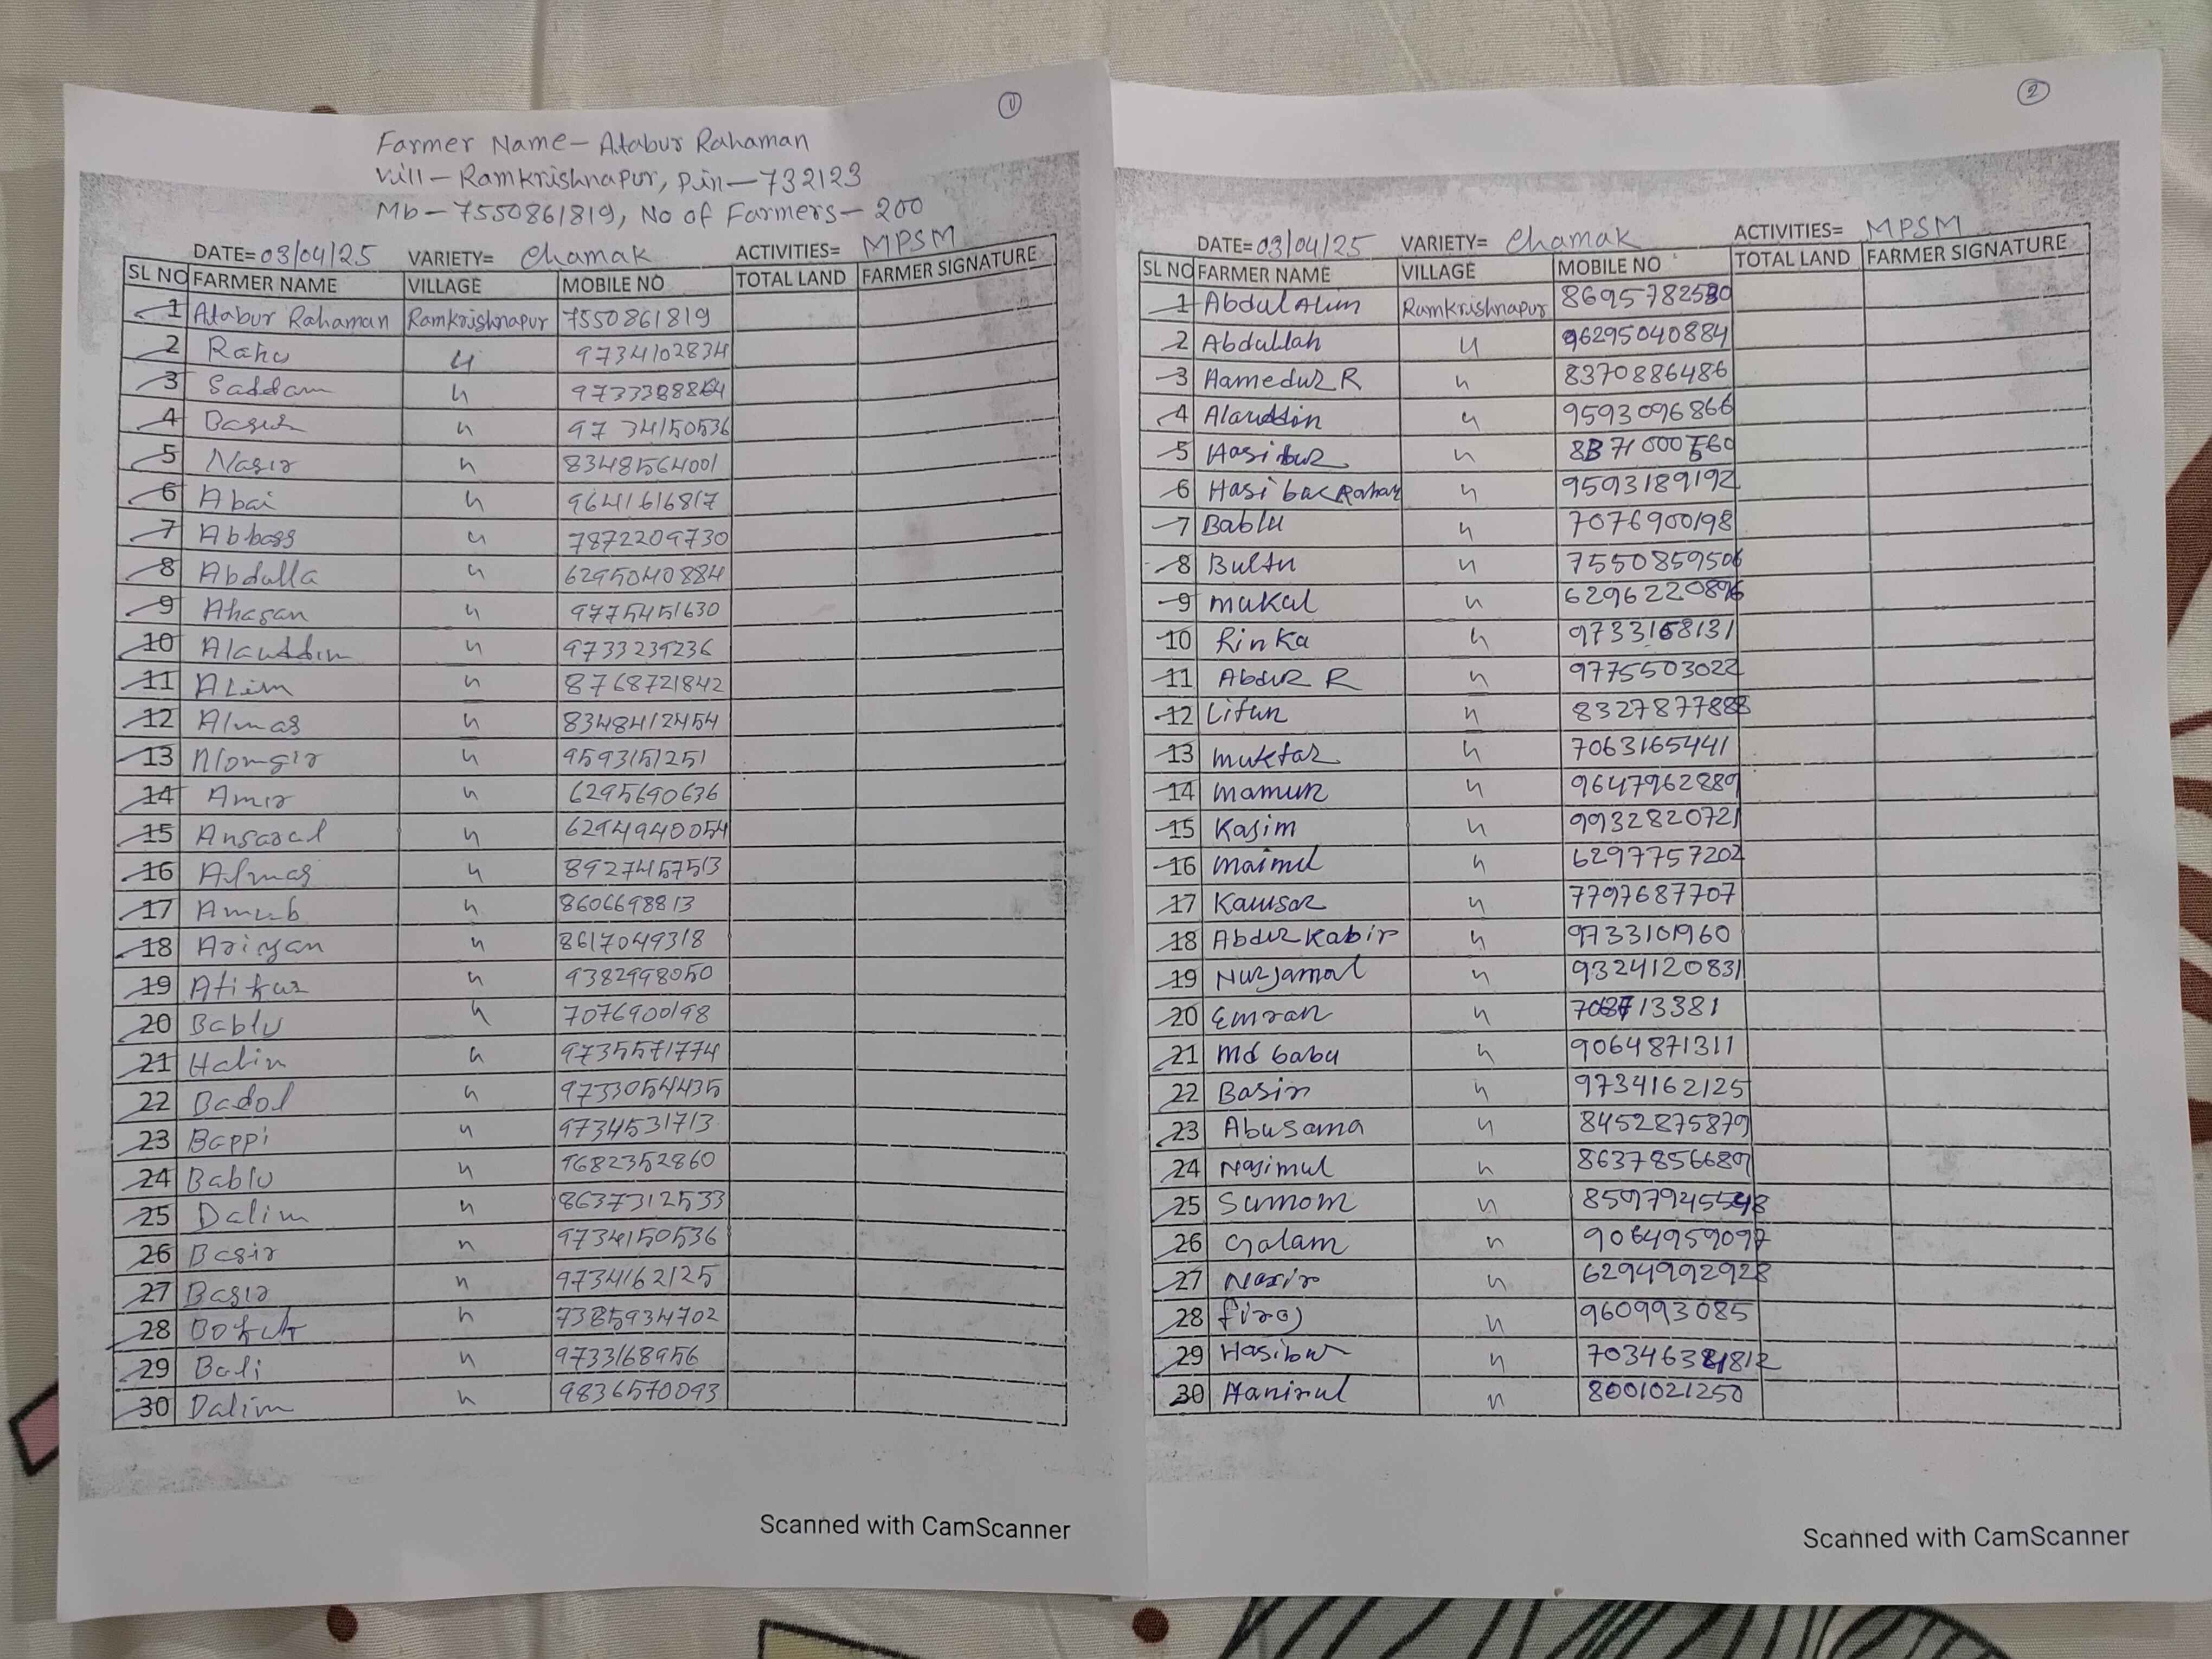 1
Farmer Name- Atabur Rahaman
Vill- Ramkrishnapur, Pin-732123
Mb-7550861819, No of Farmers- 200
DATE=03/04/25 VARIETY= Chamak ACTIVITIES= MPSM
SL NO FARMER NAME VILLAGE MOBILE NO TOTAL LAND FARMER SIGNATURE
1 Atabur Rahaman Ramkrishnapur 7550861819
2 Rahu " 9734102834
3 Saddam "
4 "  9734150536
5 Nasir " 8348564001
6 Abai " 9641616817
7 Abbass " 7872209730
8 Abdulla " 6295040884
9 Ahasan " 9775451630
10 Alauddin " 9733239236
11 Alim " 8768721842
12 Almas " 8348412454
13 Alomgir " 9593151251
14 Amir " 6295690636
15 Ansarul " 6294940054
16 Almas " 8927457513
17 " 8606698813
18 Ariyan " 8617049318
19 Atikur " 9382998050
20 Bablu " 7076900198
21 Halim " 9735571774
22 Badol " 9733054435
23 Bappi " 9734531713
24 Bablu " 9682352860
25 Dalim " 8637312533
26 Basir " 9734150536
27 Basir " 9734162125
28 " 7385934702
29 Bali " 9733168956
30 Dalim " 9836570093
Scanned with CamScanner
2
DATE=03/04/25 VARIETY= Chamak ACTIVITIES= MPSM
SL NO FARMER NAME VILLAGE MOBILE NO TOTAL LAND FARMER SIGNATURE
1 Abdul Alim Ramkrishnapur
2 Abdullah " 96295040884
3 Hamedur R " 8370886486
4 Alauddin " 9593096866
5 Hasibur "
6 Hasibur Rahan " 9593189192
7 Bablu " 7076900198
8 Bultu " 7550859506
9 mukul "
10 Rinka " 9733168131
11 Abdur R " 9775503022
12 Litun "
13 muktar " 7063165441
14 mamun " 9647962889
15 Kasim " 9932820721
16 " 6297757202
17 Kausar " 7797687707
18 Abdur Kabir " 9733101960
19 Nurjamal " 9324120831
20 Emran "
21 Md babu " 9064871311
22 Basir " 9734162125
23 Abusama " 8452875879
24 Nasimul " 8637856689
25 Sumom "
26 Golam " 9064959097
27 Nasir " 6294992928
28 firoj " 960993085
29 Hasibur "
30 " 8001021250
Scanned with CamScanner